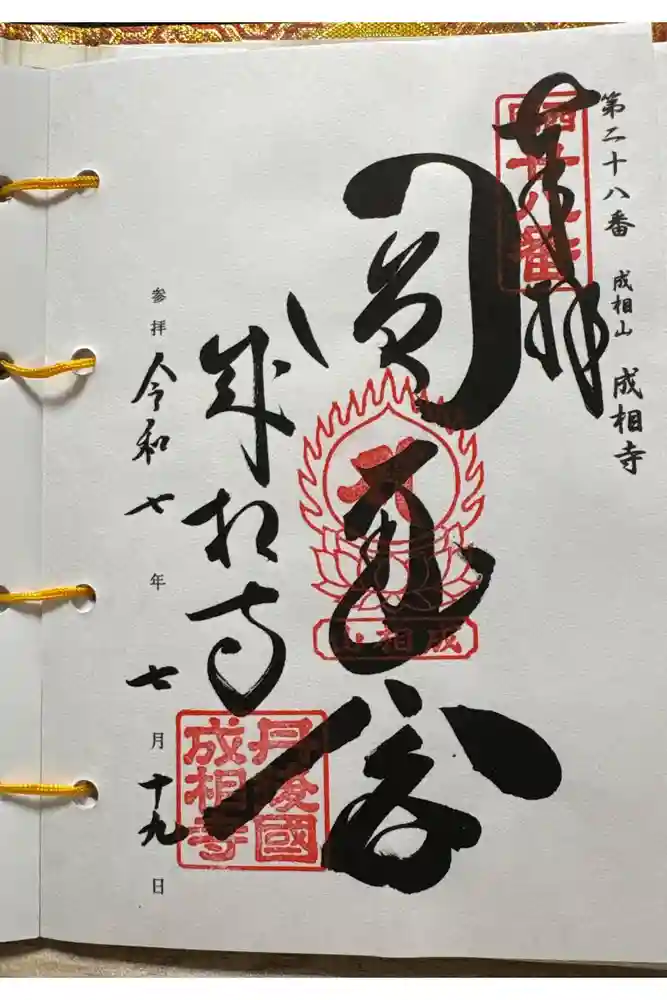 第二十八番 成相山 成相寺
奉拝
西国
廿八番
圓通(閣)
成相山
成相寺
丹後國
成相寺
参拝 令和 七 年 七 月 十九 日